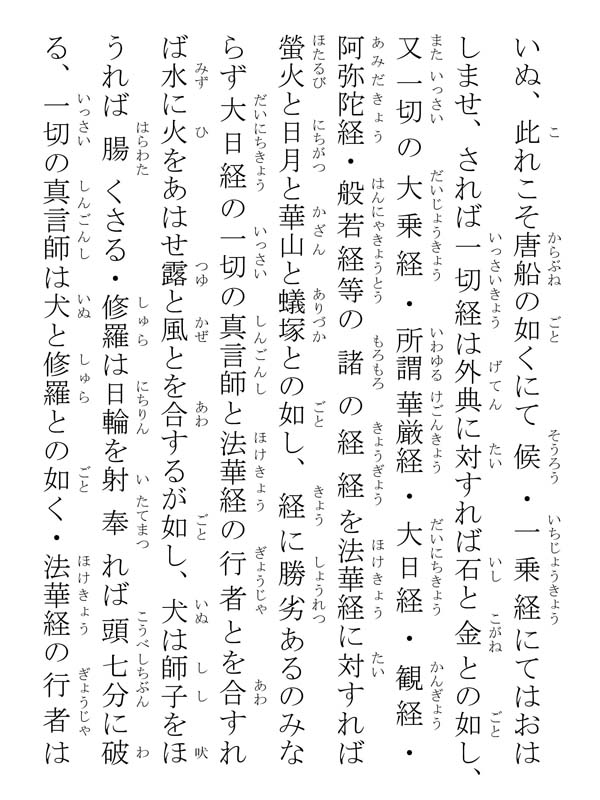 いぬ、此れこそ唐船の如くにて候・一乗経にてはおは
しませ、されば一切経は外典に対すれば石と金との如し、
又一切の大乗経・所謂華厳経・大日経・観経・
阿弥陀経・般若経等の諸の経経を法華経に対すれば
螢火と日月と華山と蟻塚との如し、経に勝劣あるのみな
らず大日経の一切の真言師と法華経の行者とを合すれ
ば水に火をあはせ露と風とを合するが如し、犬は師子をほ
うれば腸くさる・修羅は日輪を射奉れば頭七分に破
る、一切の真言師は犬と修羅との如く・法華経の行者は